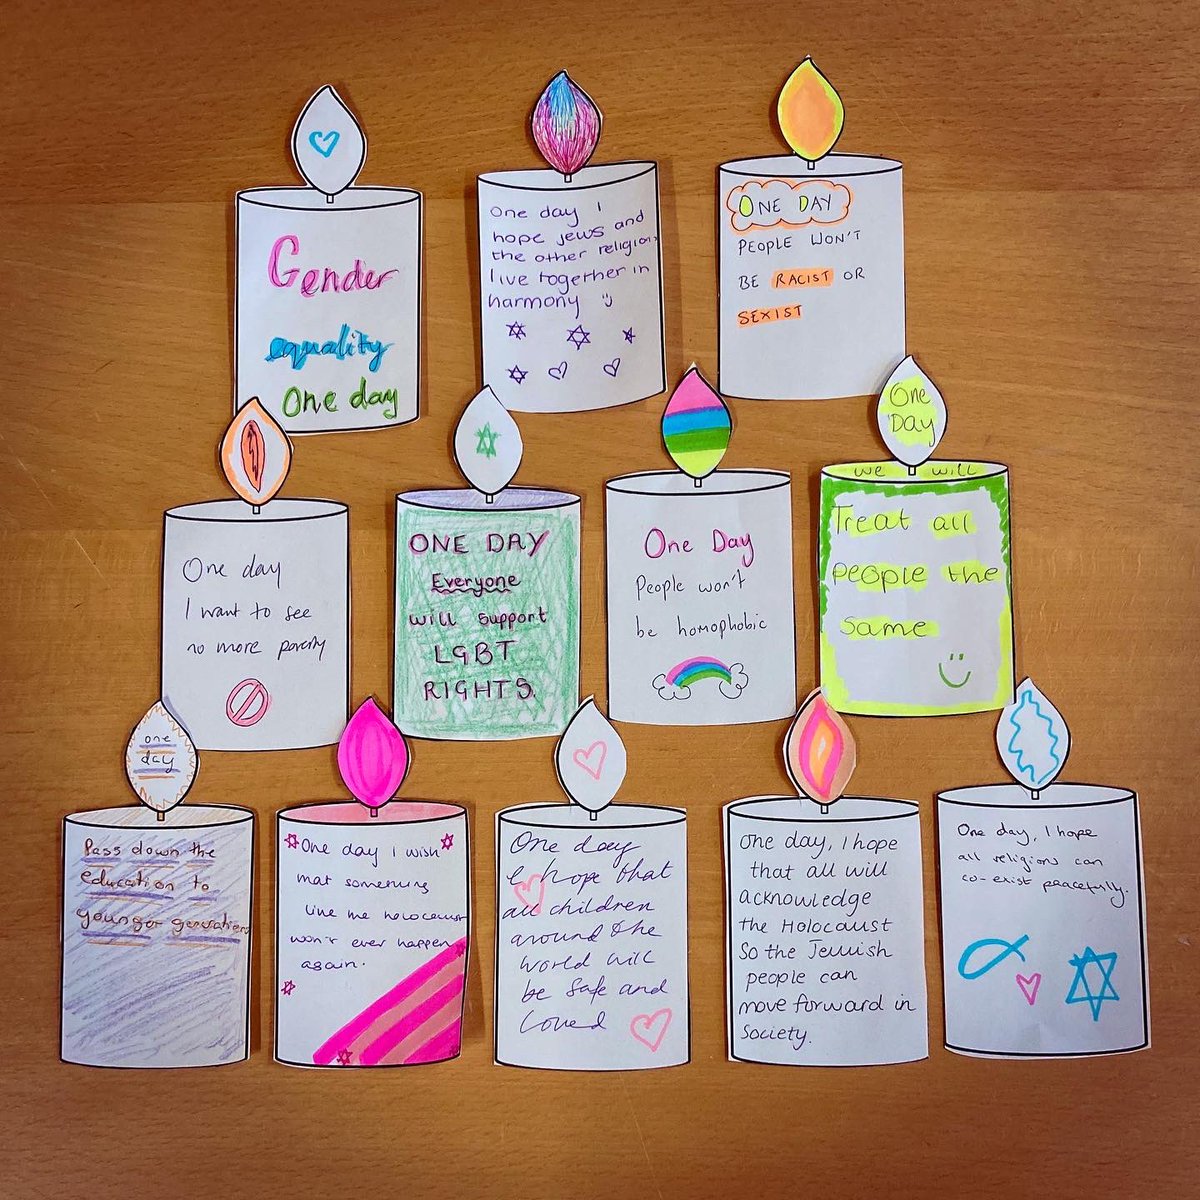 Gender
equality
One day
One day I
hope jews and
the other religions
live together in
harmony
ONE DAY
PEOPLE WON'T
BE RACIST OR
SEXIST
One day
I want to see
no more poverty
ONE DAY
Everyone
will support
LGBT
RIGHTS.
One Day
People won't
be homophobic
One
Day
we will
Treat all
people the
same
one
day
Pass down the
education to
younger generations
One day I wish
that something
like the holocaust
won't ever happen
again.
One day
I hope that
all children
around the
world will
be safe and
loved
One day, I hope
that all will
acknowledge
the Holocaust
So the Jewish
people can
move forward in
Society.
One day, I hope
all religions can
co-exist peacefully.